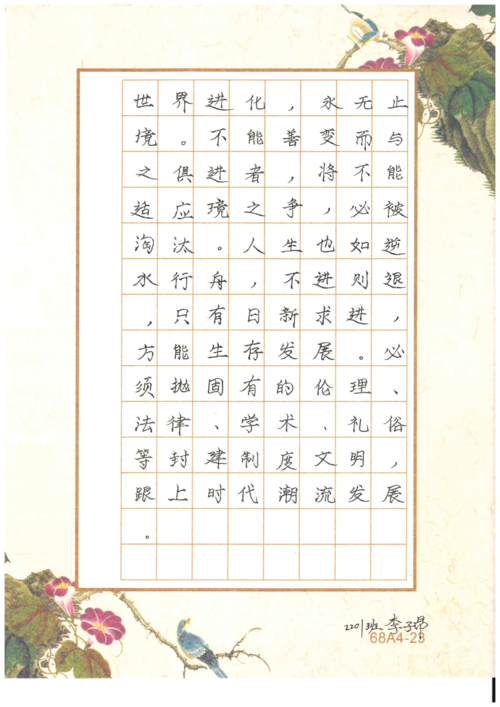 世界进化，永无止
境。不能善变而与
之俱进者，将不能
适应境之争，必被
淘汰。人生也如逆
水行舟，不进则退，
，只有日新求进，
方能生存发展。必
须抛固有的伦理、
法律、学术、礼俗
等封建制度文明，
跟上时代潮流发展
。
2201班 李子昂
68A4-23